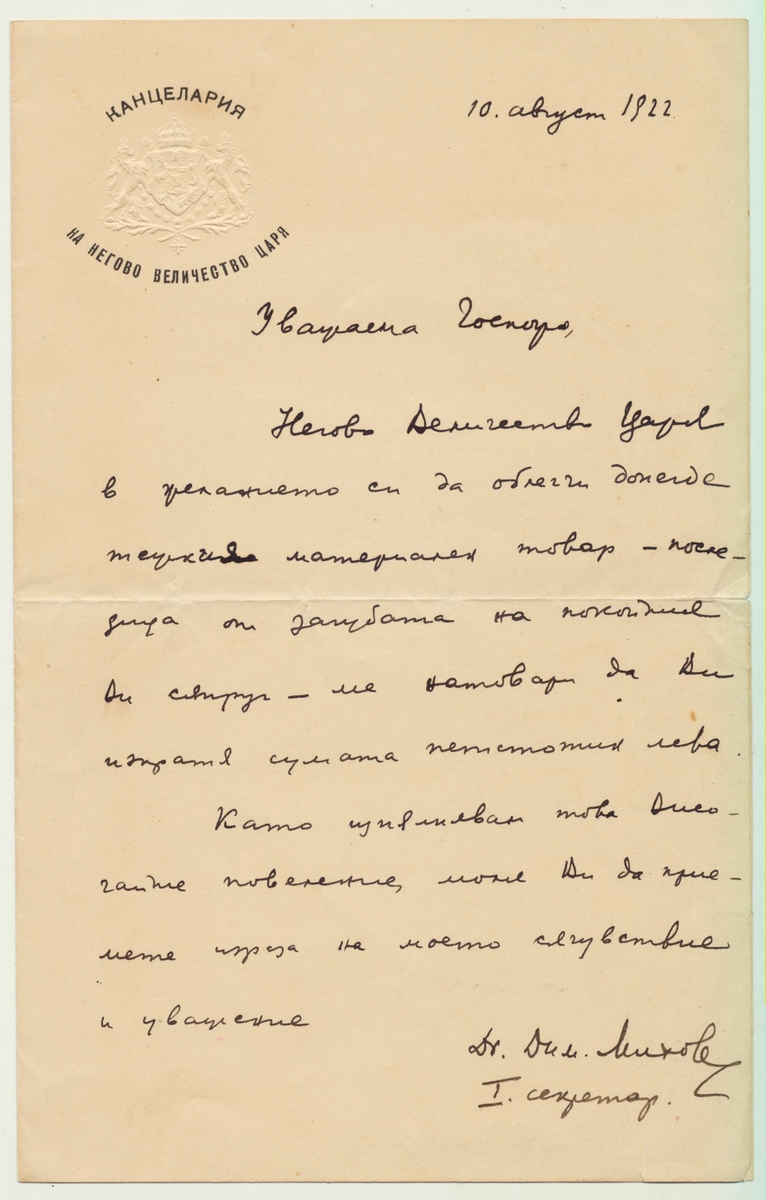 КАНЦЕЛАРИЯ
НА НЕГОВО ВЕЛИЧЕСТВО ЦАРЯ
10. август 1922.
Уважаема Госпожо,
Негово Величество Царя
в желанието си да облегчи донегде
тежкия материален товар – после-
дица от загубата на покойния
Ви съпруг – ме натовари да Ви
изпратя сумата петстотин лева.
Като изпълнявам това Висо-
чайше повеление, моля Ви да прие-
мете израза на моето съчувствие
и уважение
Dr. Дим.
I. секретар.